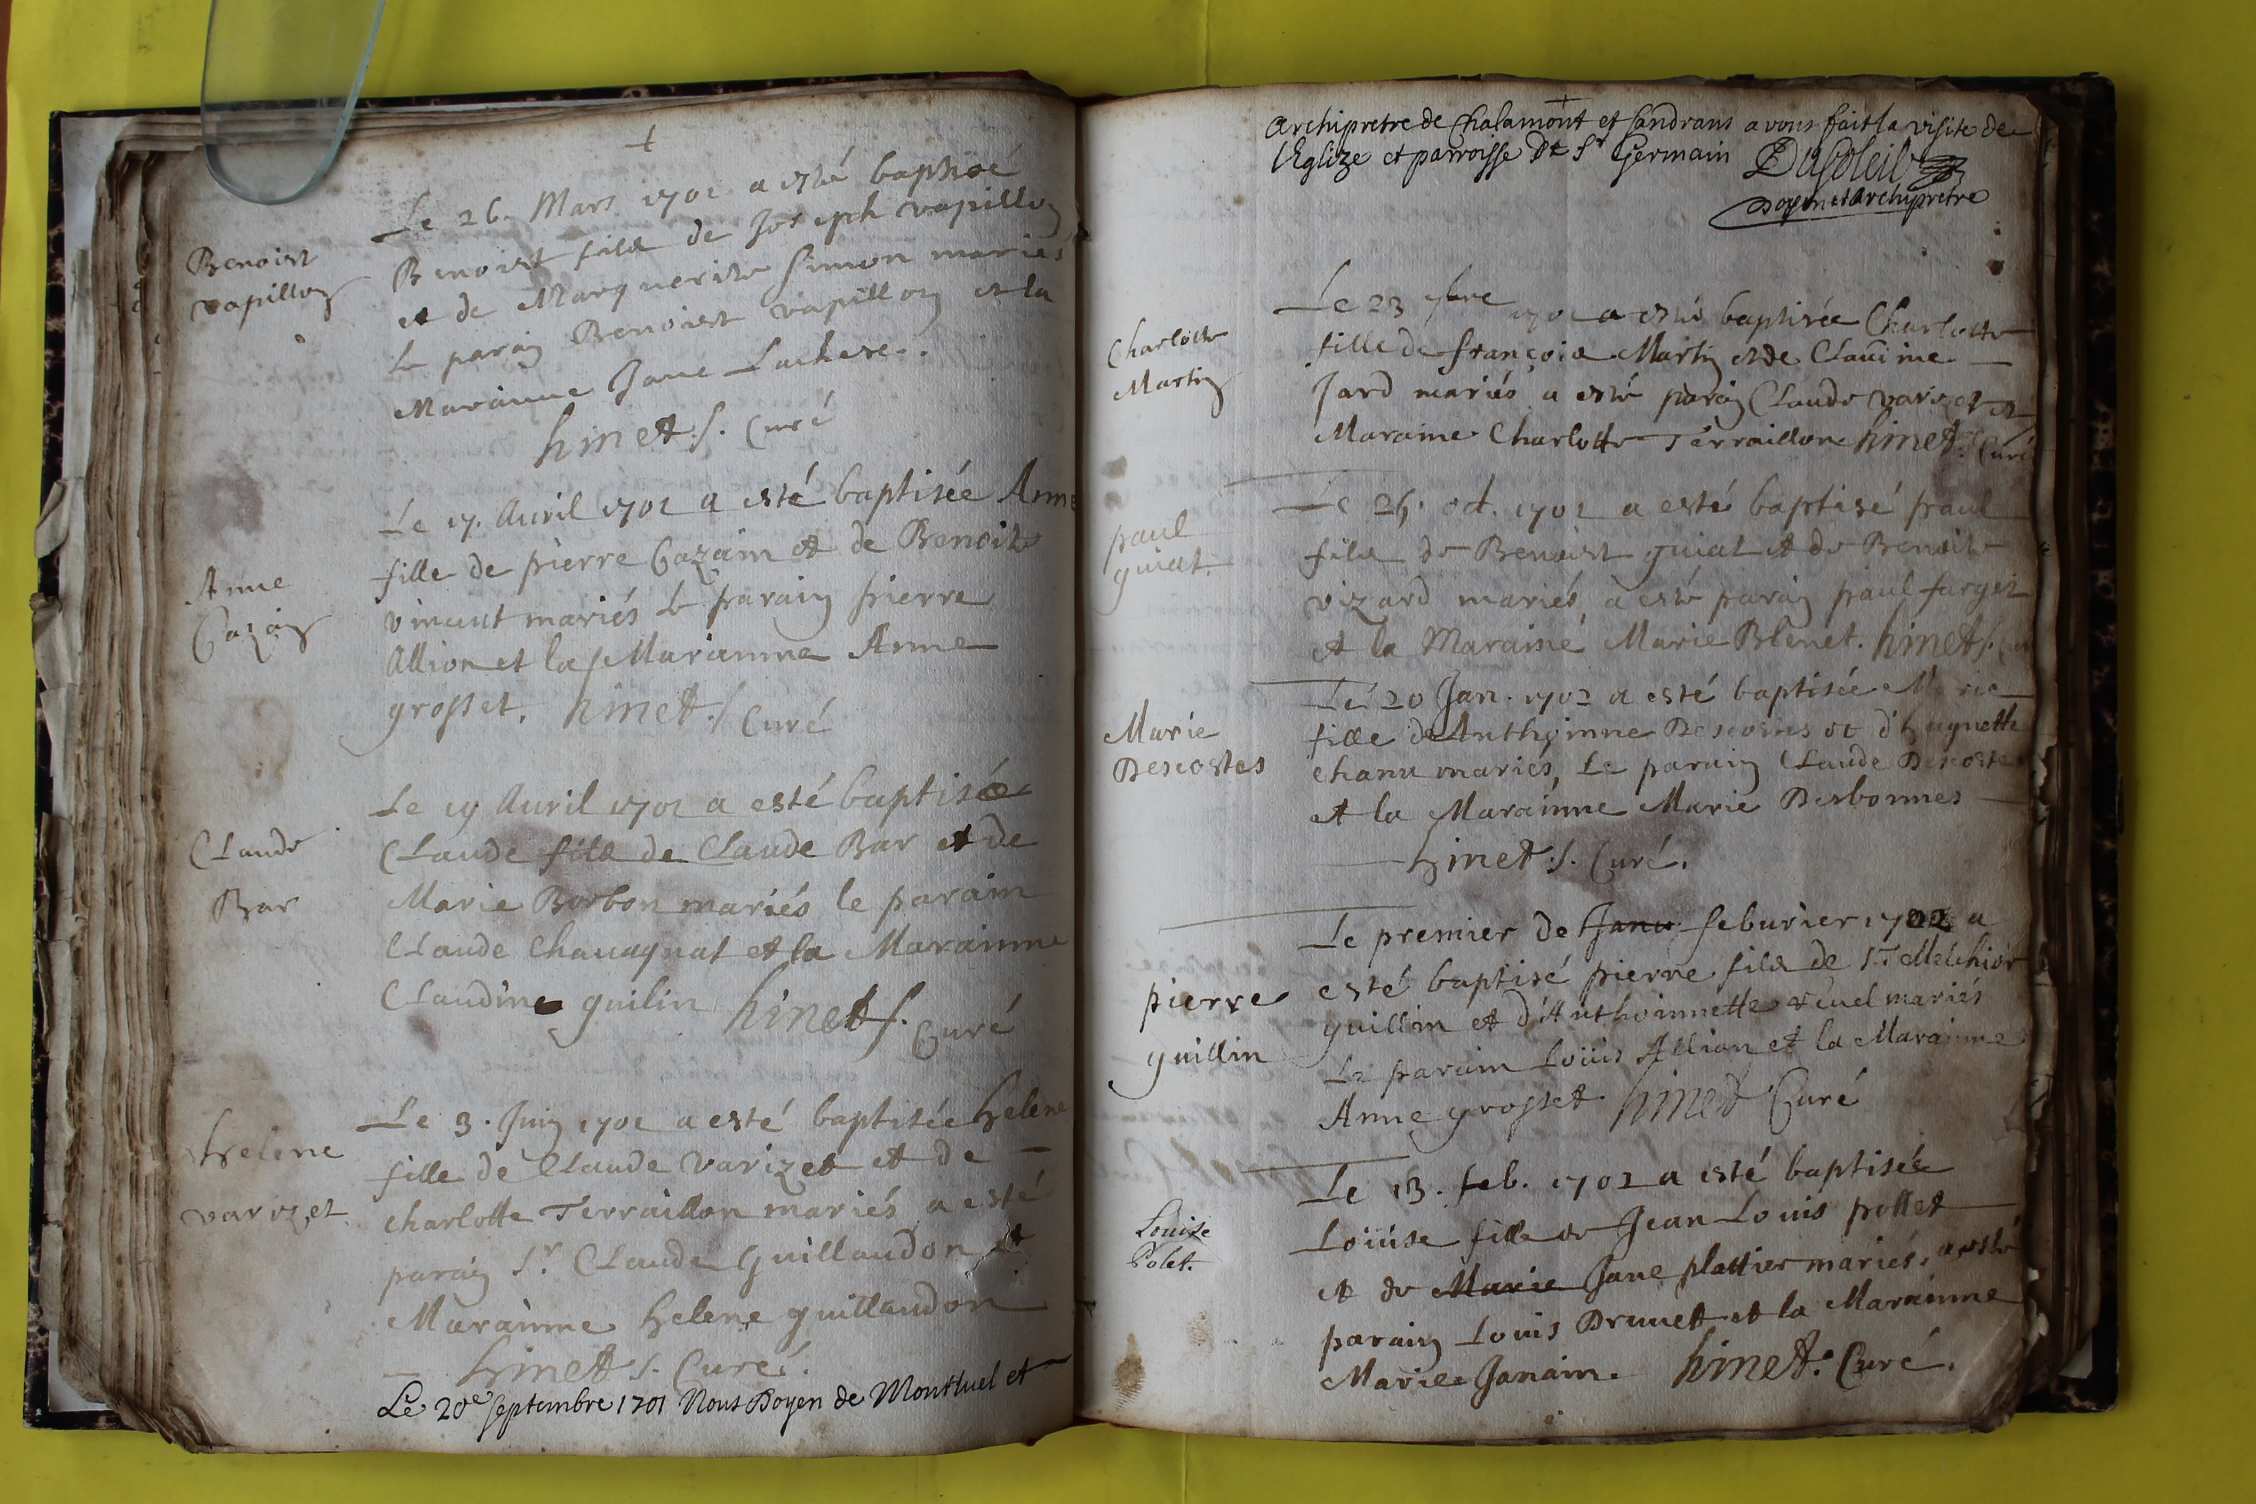 Benoist
vapillon
Le 26. Mars 1701 a esté baptisé
Benoist fils de Joseph vapillon
et de Marguerite Simon mariés
le parain Benoist vapillon et la
Marainne Jane Lachese.
hinet. s. Curé
Anne
Cazain
Le 17. Auril 1701 a esté baptisée Anne
fille de pierre Cazain et de Benoite
vincent mariés le parain pierre
Allion et la Marainne Anne
grosset. hinet. s Curé
Claude
Bar
Le 19 Auril 1701 a esté baptisé
Claude fils de Claude Bar et de
Marie Borbon mariés le parain
Claude Chauagnat et la Marainne
Claudine guilin hinet s.
Curé
helene
varizet
Le 3. Juin 1701 a esté baptisée helene
fille de Claude varizet et de
charlotte Terraillon mariés a esté
parain Sr. Claude Guillaudon et
Marainne helene guillaudon
hinet s. Curé.
Le 20e septembre 1701 Nous Doyen de Montluel et
Archipretre de Chalamont et Sandrans avons fait la visite de
l'Eglize et parroisse de St Germain DuSoleil
Doyen et Archipretre
Charlotte
Martin
Le 23 7bre 1701 a esté baptisée Charlotte
fille de françois Martin et de Clauine
Jard mariés a esté parain Claude varizet et
Maraine Charlotte Terraillon hinet s. Curé
paul
guiat.
Le 25. oct. 1701 a esté baptisé paul
fils de Benoist guiat et de Benoite
vizard mariés, a esté parain paul farget
et la Maraine Marie Blenet. hinet s.
Marie
Descostes
Le 20 Jan. 1702 a esté baptisée Marie
fille de Anthoinne Descostes et d'huguette
chanu mariés, Le parain Claude Descostes
et la Marainne Marie Desbonnes
hinet. s. Curé.
pierre
guillin
Le premier de Janu. feburier 1702 a
esté baptisé pierre fils de Sr Melchior
guillin et d'Anthoinnette reuel mariés
Le parain Loüis Allion et la Marainne
Anne grosset hinet Curé
Louise
Polet.
Le 13. feb. 1702 a esté baptisée
Loüise fille de Jean Louis pollet
et de Marie Jane plattier mariés, a esté
parain Louis Drunet et la Marainne
Marie Janain. hinet. Curé.